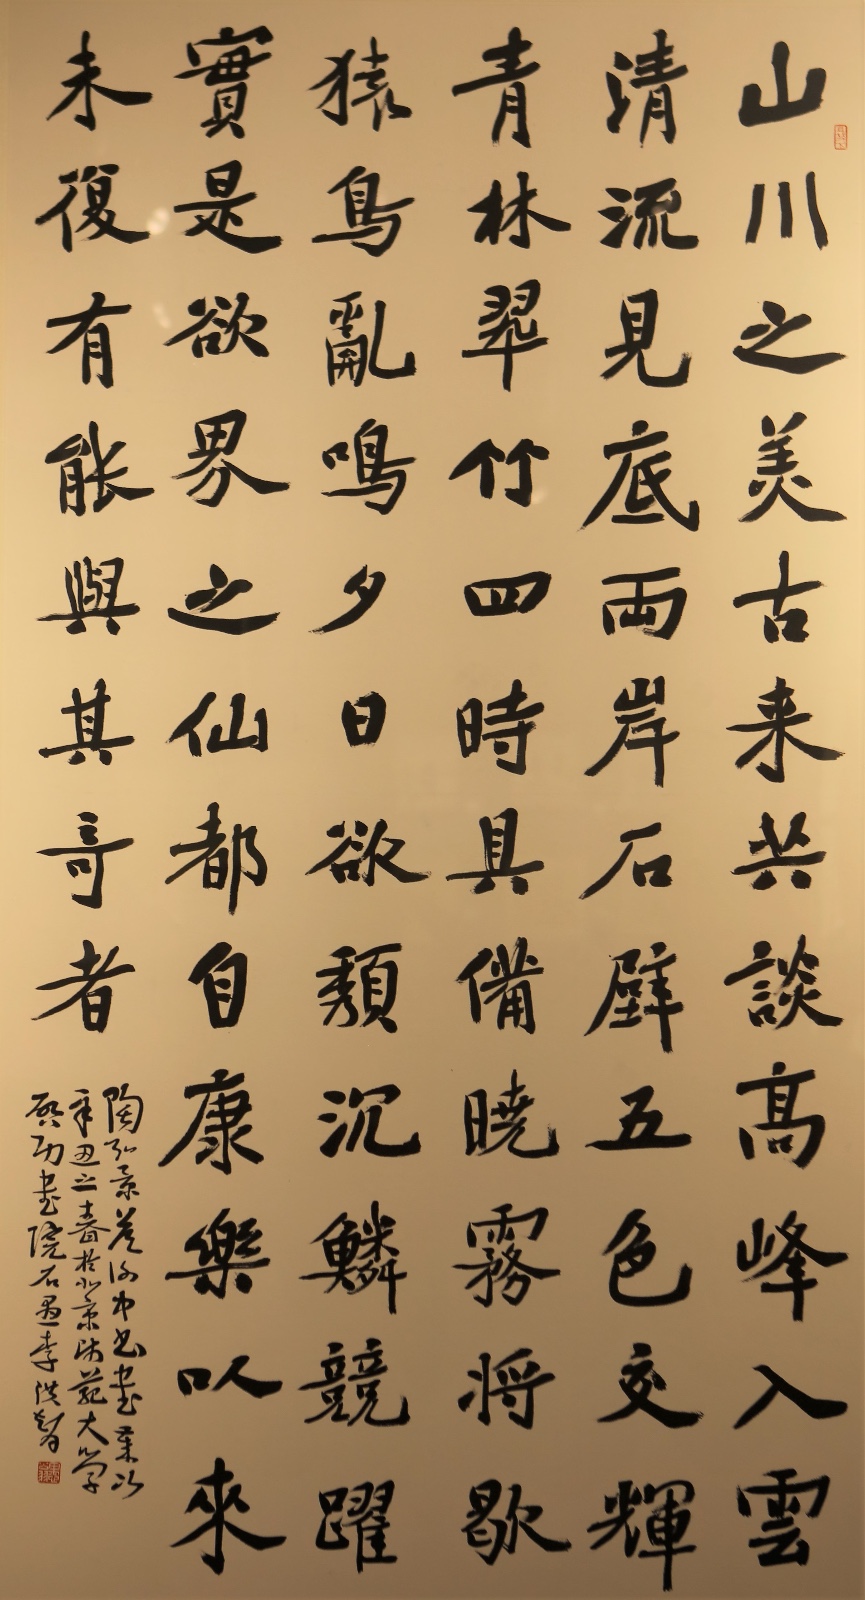 山川之美古来共談高峰入雲
清流見底両岸石壁五色交輝
青林翠竹四時具備暁霧将歇
猿鳥亂鳴夕日欲頹沉鱗競躍
實是欲界之仙都自康樂以來
未復有能與其奇者
陶弘景答谢中书书歲次
辛丑之春於北京师范大学
啓功书院石愚李洪智